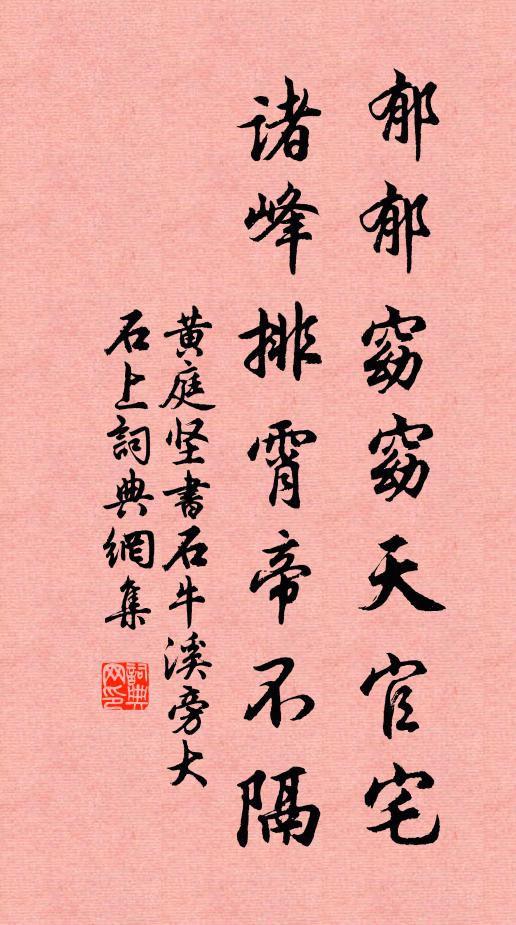 郁郁窈窈天官宅
诸峰排霄帝不隔
黄庭坚書石牛溪旁大
石上詞典網集
詞典网印